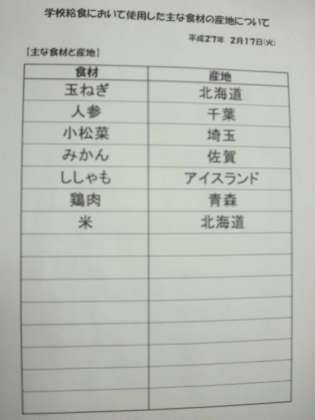 学校給食において使用した主な食材の産地について
平成27年 2月17日(火)
【主な食材と産地】
食材 産地
玉ねぎ 北海道
人参 千葉
小松菜 埼玉
みかん 佐賀
ししゃも アイスランド
鶏肉 青森
米 北海道